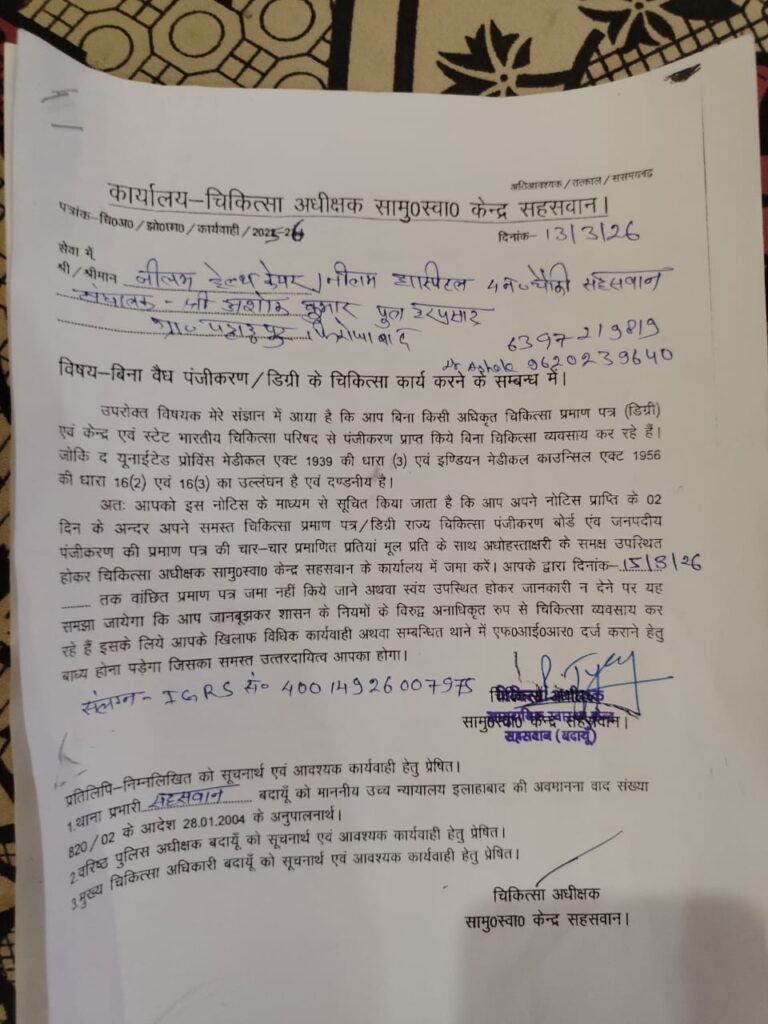 अतिआवश्यक/तत्काल/ससमयबद्ध
कार्यालय–चिकित्सा अधीक्षक सामु0स्वा0 केन्द्र सहसवान।
पत्रांक–चि0अ0/झो0छा0/कार्यवाही/2025-26
दिनांक- 13/3/26
सेवा में
श्री/श्रीमान नीलम हेल्थ केयर/नीलम हास्पिटल 4 न० चौकी सहसवान
संचालक - श्री अशोक कुमार पुत्र हरप्रसाद
ग्रा० पहाड़पुर फिरोजाबाद
6397219819
Dr Ashok 9620239640
विषय–बिना वैध पंजीकरण/डिग्री के चिकित्सा कार्य करने के सम्बन्ध में।
उपरोक्त विषयक मेरे संज्ञान में आया है कि आप बिना किसी अधिकृत चिकित्सा प्रमाण पत्र (डिग्री)
एवं केन्द्र एवं स्टेट भारतीय चिकित्सा परिषद से पंजीकरण प्राप्त किये बिना चिकित्सा व्यवसाय कर रहे हैं।
जोकि द यूनाईटेड प्रोविंस मेडीकल एक्ट 1939 की धारा (3) एवं इण्डियन मेडीकल काउन्सिल एक्ट 1956
की धारा 16(2) एवं 16(3) का उल्लंघन है एवं दण्डनीय है।
अतः आपको इस नोटिस के माध्यम से सूचित किया जाता है कि आप अपने नोटिस प्राप्ति के 02
दिन के अन्दर अपने समस्त चिकित्सा प्रमाण पत्र/डिग्री राज्य चिकित्सा पंजीकरण बोर्ड एंव जनपदीय
पंजीकरण की प्रमाण पत्र की चार–चार प्रमाणित प्रतियां मूल प्रति के साथ अधोहस्ताक्षरी के समक्ष उपस्थित
होकर चिकित्सा अधीक्षक सामु0स्वा0 केन्द्र सहसवान के कार्यालय में जमा करें। आपके द्वारा दिनांक- 15/3/26
........ तक वांछित प्रमाण पत्र जमा नहीं किये जाने अथवा स्वंय उपस्थित होकर जानकारी न देने पर यह
समझा जायेगा कि आप जानबूझकर शासन के नियमों के विरुद्ध अनाधिकृत रुप से चिकित्सा व्यवसाय कर
रहे हैं इसके लिये आपके खिलाफ विधिक कार्यवाही अथवा सम्बन्धित थाने में एफ0आई0आर0 दर्ज कराने हेतु
बाध्य होना पड़ेगा जिसका समस्त उत्तरदायित्व आपका होगा।
संलग्न- IGRS सं० 40014926007975
चिकित्सा अधीक्षक
सामुदायिक स्वास्थ्य केन्द्र
सामु0स्वा0 केन्द्र सहसवान।
सहसवान (बदायूँ)
प्रतिलिपि–निम्नलिखित को सूचनार्थ एवं आवश्यक कार्यवाही हेतु प्रेषित।
1.थाना प्रभारी सहसवान बदायूँ को माननीय उच्च न्यायालय इलाहाबाद की अवमानना वाद संख्या
820/02 के आदेश 28.01.2004 के अनुपालनार्थ।
2.वरिष्ठ पुलिस अधीक्षक बदायूँ को सूचनार्थ एवं आवश्यक कार्यवाही हेतु प्रेषित।
3.मुख्य चिकित्सा अधिकारी बदायूँ को सूचनार्थ एवं आवश्यक कार्यवाही हेतु प्रेषित।
चिकित्सा अधीक्षक
सामु0स्वा0 केन्द्र सहसवान।